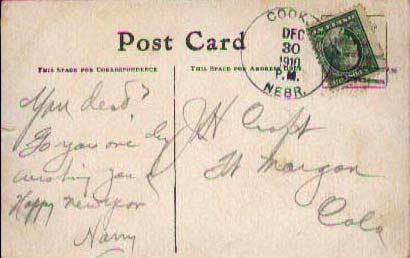 Post Card
THIS SPACE FOR CORRESPONDENCE
THIS SPACE FOR ADDRESS
COOK
DEC
30
1910
P.M.
NEBR.
You dead?
wishing you a
Happy new year
Harry
J H Croft
Ft Morgan
Colo